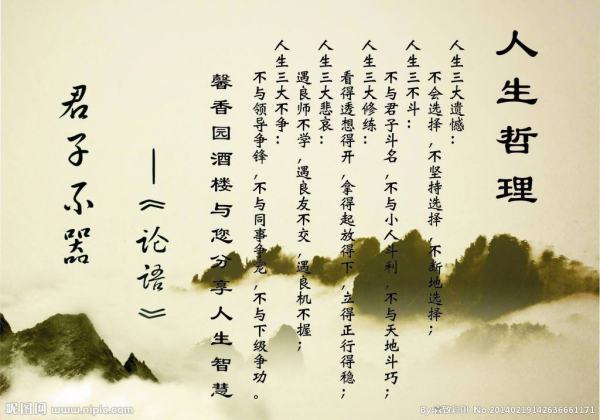 人生哲理
人生三大遗憾：
不会选择，不坚持选择，不断地选择；
人生三不斗：
不与君子斗名，不与小人斗利，不与天地斗巧；
人生三大修练：
看得透想得开，拿得起放得下，立得正行得稳；
人生三大悲哀：
遇良师不学，遇良友不交，遇良机不握；
人生三大不争：
不与领导争锋，不与同事争宠，不与下级争功。
馨香园酒楼与您分享人生智慧
—《论语》
君子不器
昵图网
www.nipic.com
No.20140219142636661171